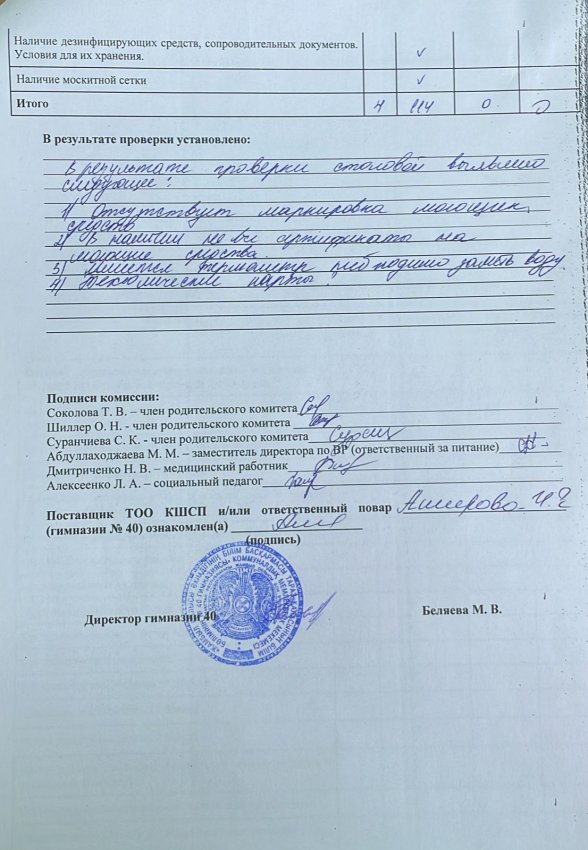 Наличие дезинфицирующих средств, сопроводительных документов.
Условия для их хранения. ✓
Наличие москитной сетки ✓
Итого 4 114 0 0
В результате проверки установлено:
В результате проверки столовой выявлено
следующее:
1) Отсутствует маркировка моющих
средств
2) В наличии не все сертификаты на
моющие средства.
3) термометр воду
4) карты.
Подписи комиссии:
Соколова Т. В. – член родительского комитета
Шиллер О. Н. - член родительского комитета
Суранчиева С. К. - член родительского комитета
Абдуллаходжаева М. М. – заместитель директора по ВР (ответственный за питание)
Дмитриченко Н. В. – медицинский работник
Алексеенко Л. А. – социальный педагог
Поставщик ТОО КШСП и/или ответственный повар Аширова
(гимназии № 40) ознакомлен(а)
(подпись)
Директор гимназии 40 Беляева М. В.